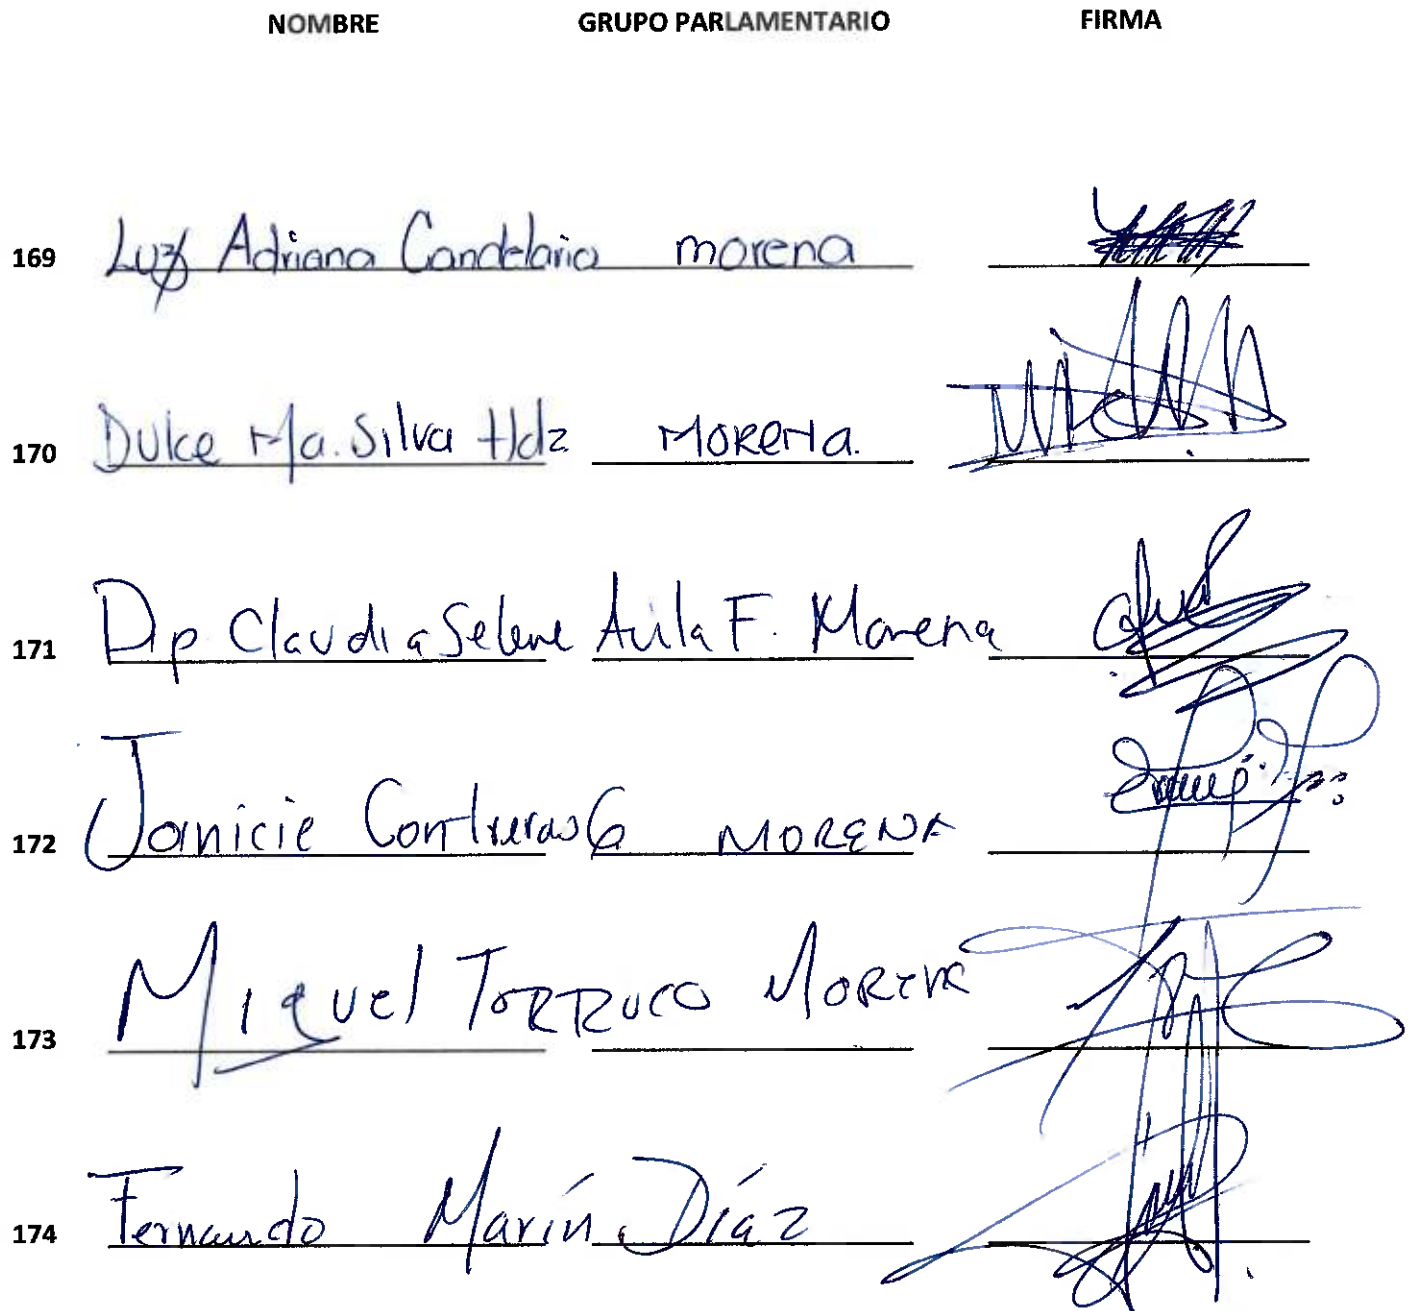 NOMBRE GRUPO PARLAMENTARIO FIRMA
169 Luz Adriana Candelario morena
170 Dulce Ma. Silva Hdz MORENA.
171 Dip Claudia Selene Avila F. Morena
172 Janicie Contreras G MORENA
173 Miguel TORRUCO MORENA
174 Fernando Marín Díaz